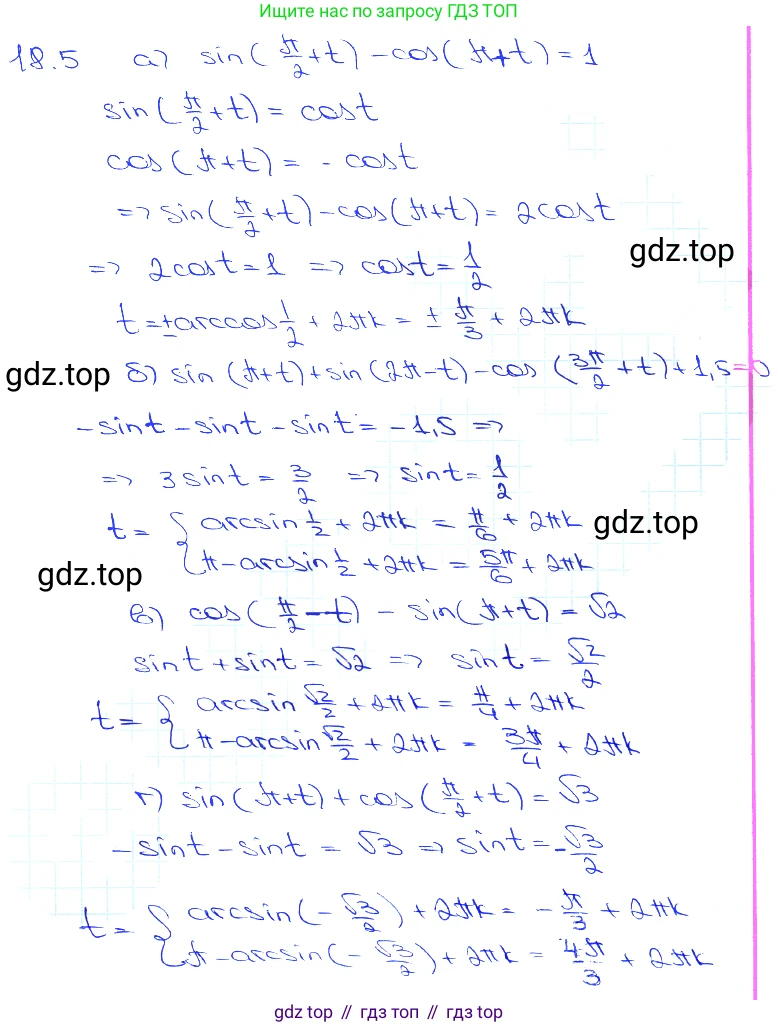 Ищите нас по запросу ГДЗ ТОП
18.5 а) sin(π/2+t) - cos(π+t) = 1
sin(π/2+t) = cost
cos(π+t) = - cost
=> sin(π/2+t) - cos(π+t) = 2cost
=> 2cost = 1 => cost = 1/2
gdz.top
t = ±arccos 1/2 + 2πk = ± π/3 + 2πk
gdz.top
б) sin (π+t) + sin (2π-t) - cos (3π/2 + t) + 1,5 = 0
-sint - sint - sint = -1,5 =>
=> 3sint = 3/2 => sint = 1/2
t = { arcsin 1/2 + 2πk = π/6 + 2πk
gdz.top
π - arcsin 1/2 + 2πk = 5π/6 + 2πk
gdz.top
в) cos(π/2 - t) - sin(π+t) = √2
sint + sint = √2 => sint = √2/2
t = { arcsin √2/2 + 2πk = π/4 + 2πk
π - arcsin √2/2 + 2πk = 3π/4 + 2πk
г) sin(π+t) + cos(π/2 + t) = √3
-sint - sint = √3 => sint = -√3/2
t = { arcsin(-√3/2) + 2πk = - π/3 + 2πk
π - arcsin(-√3/2) + 2πk = 4π/3 + 2πk
gdz.top // гдз топ // гдз top